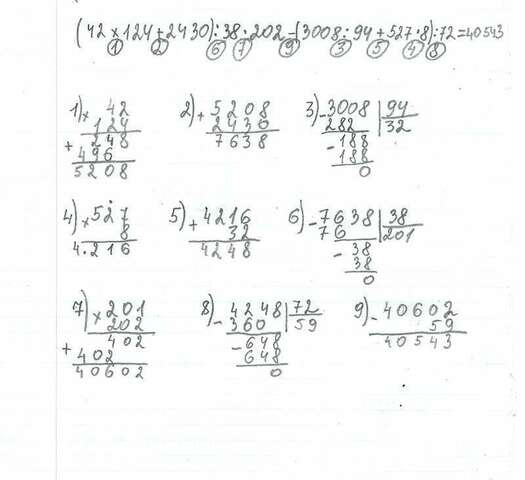 (42×124+2430):38·202-(3008:94+527·8):72=40543
1 2 6 7 9 3 5 4 8
1) × 42 2) + 5208 3) - 3008 | 94
124 2430 282 32
248 7638 - 188
+ 496 188
5208 0
4) × 527 5) + 4216 6) - 7638 | 38
8 32 76 201
4.216 4248 - 38
38
0
7) × 201 8) - 4248 | 72 9) - 40602
202 360 59 59
402 - 648 40543
+ 402 648
40602 0